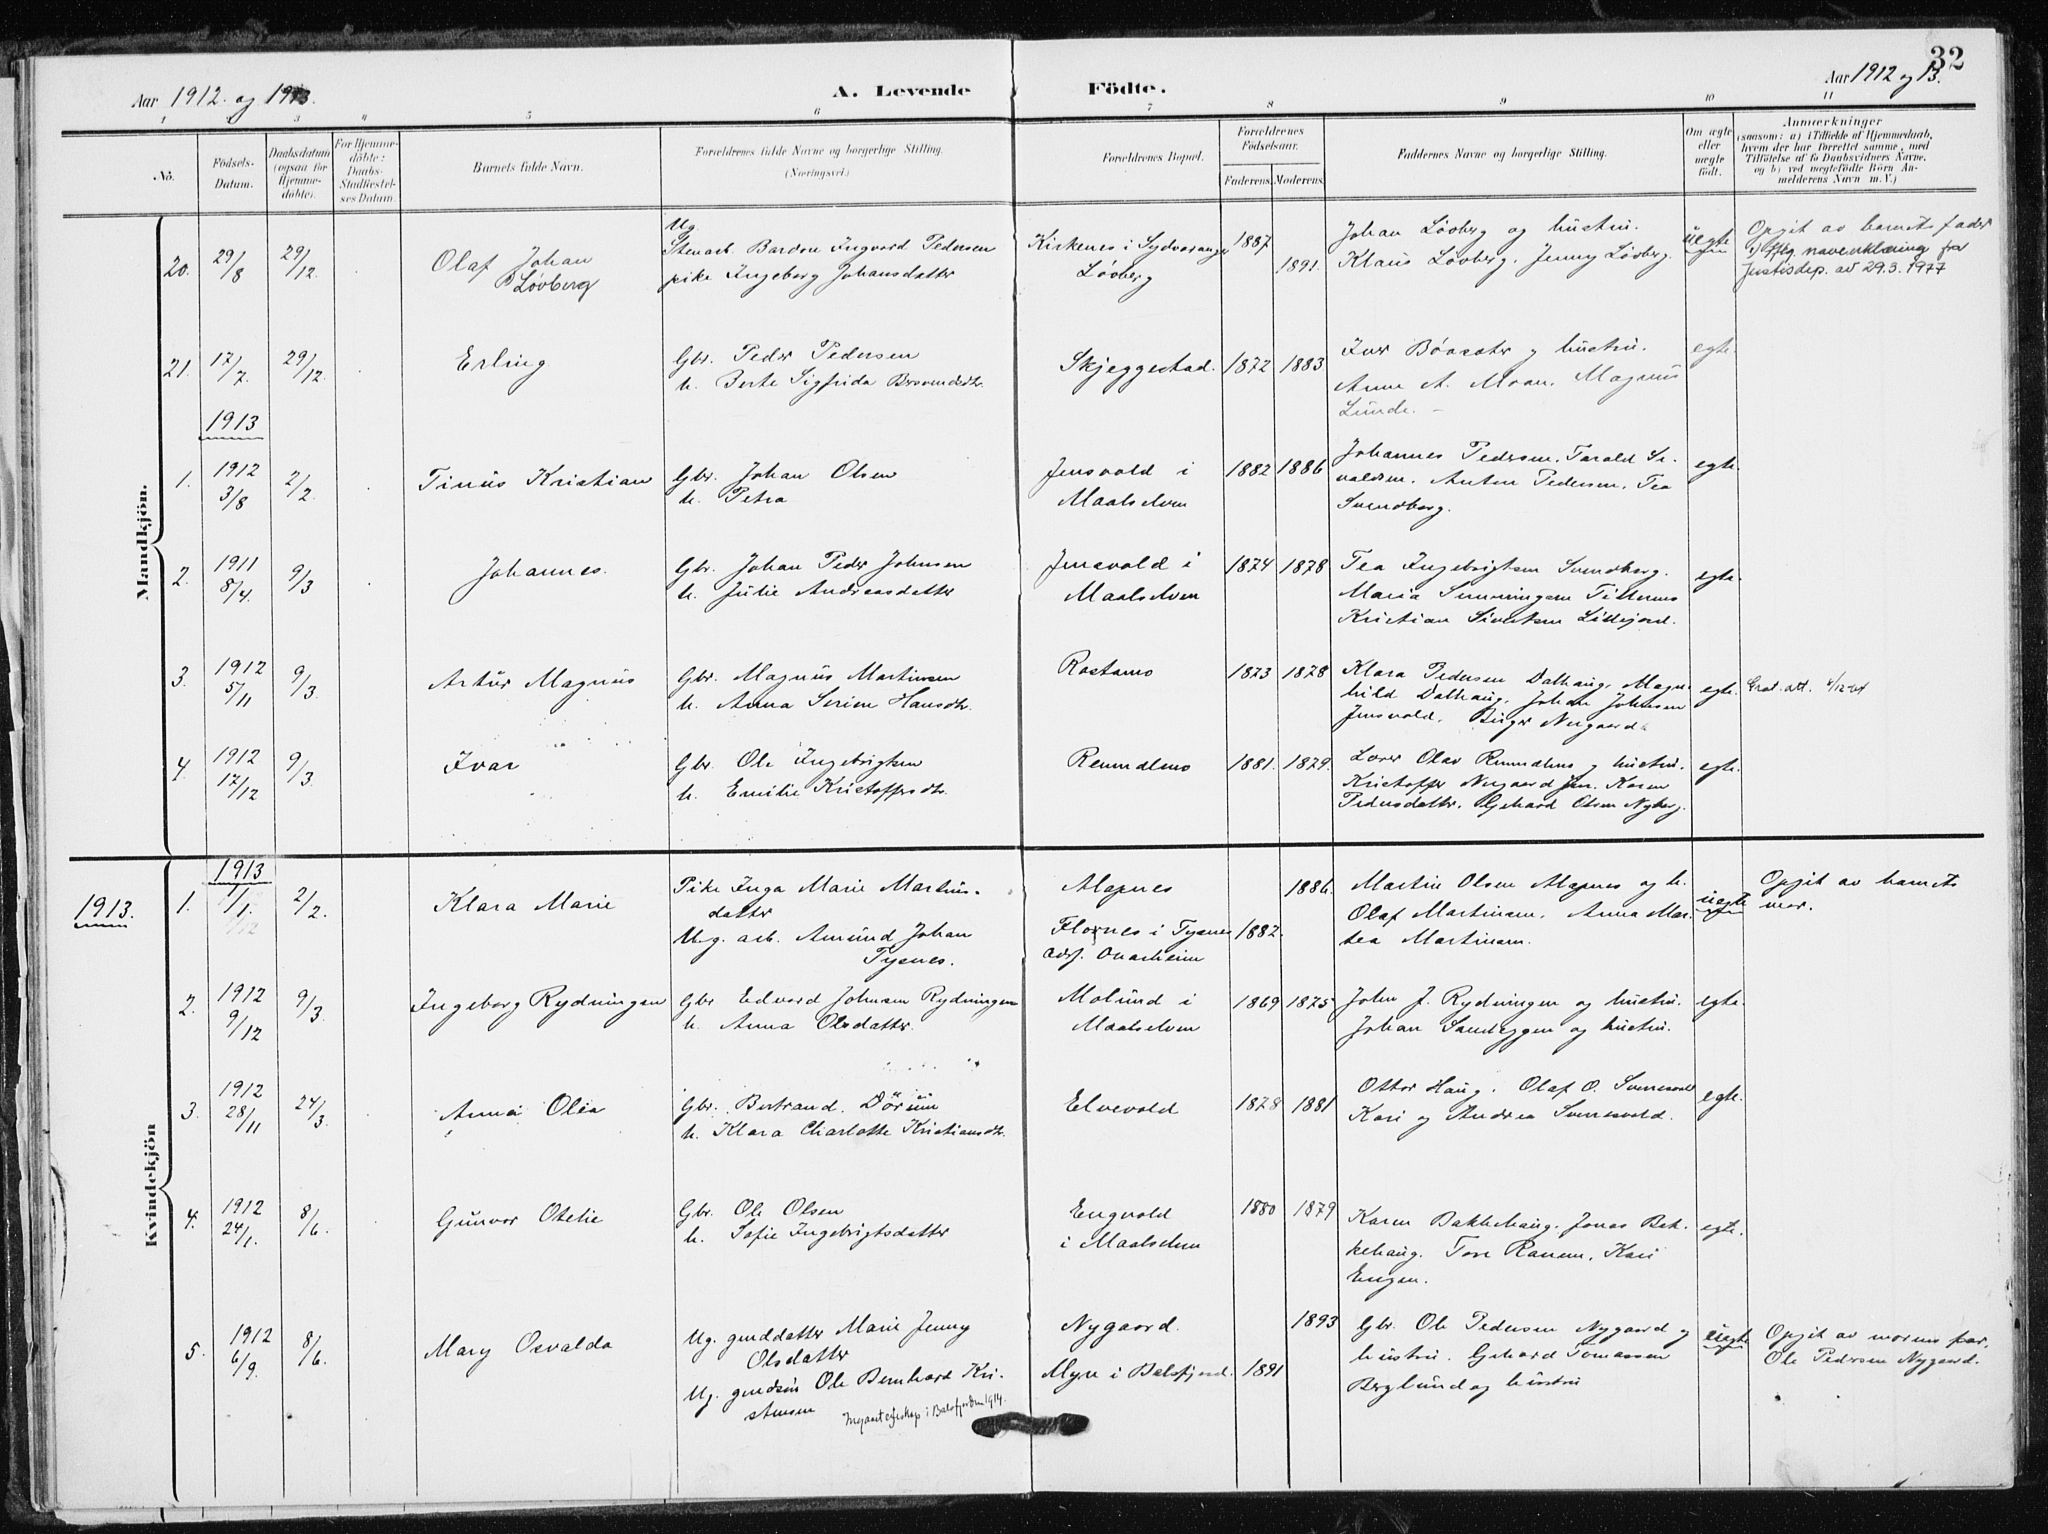 32
Aar 1912. og 1913.
A. Levende
Födte.
Aar 1912 og 13.
1 2 3 4 5 6 7 8 9 10 11
No.
Födsels-
Datum.
Daabsdatum
(ogsaa for
Hjemme-
döbte).
For Hjemme-
döbte:
Daabs-
Stadfæstel-
ses Datum.
Barnets fulde Navn.
Forældrenes fulde Navne og borgerlige Stilling.
(Næringsvei.)
Forældrenes Bopæl.
Forældrenes
Födselsaar.
Faderens. Moderens.
Faddernes Navne og borgerlige Stilling.
Om ægte
eller
uægte
födt.
Anmærkninger
(saasom: a) i Tilfælde af Hjemmedaab,
hvem der har forrettet samme, med
Tilföielse af to Daabsvidners Navne,
og b) ved uægtefödte Börn An-
melderens Navn m. V.)
Mandkjön.
20. 29/8 29/12
Olaf Johan
Løvberg
Ug.
Stenarb. Bardon Ingvard Pedersen
pike Ingeborg Johansdatter
Kirkenes i Sydvaranger
Løvberg
1887
1891.
Johan Løvberg og hustru.
Klaus Løvberg. Jenny Løvberg.
uegte
Opgit av barnets fader
navneerklæring fra
Justisdep. av 29.3.1977
21. 17/7. 29/12.
Erling
Gbr. Peder Pedersen
h. Berte Sigfrida
Skjeggestad.
1872 1883
og hustru.
Anne A. Moan. Magnus
Lunde. –
egte.
1913
1. 1912 3/8 2/2.
Tinus Kristian
Gbr. Johan Olsen
h. Petra
Jensvold i
Maalselven
1882 1886
Johannes Pedersen. Tarald Si-
valdsen. Anton Pedersen. Tea
Svendberg.
egte.
2. 1911 8/4. 9/3
Johannes.
Gbr. Johan Peder Johnsen
h. Julie Andreasdatter
Jensvold i
Maalselven
1874 1878
Tea Ingebrigtsen Svendberg.
Maria
Kristian Sivertsen Lillefjord.
egte.
3. 1912 5/11 9/3
Artur Magnus
Gbr. Magnus Martinsen
h. Anna Serine Hansdtr.
Rostamo
1873 1878
Klara Pedersen Dalhaug. Magn-
hild Dalhaug. Johan Johnsen
Jensvold. Birger Nygaard.
egte.
4. 1912 17/12 9/3
Ivar
Gbr. Ole Ingebrigtsen
h. Emilie Kristoffersdtr.
1881. 1879.
Olav og hustru.
Kristoffer Nygaard jun. Karen
Pedersdatter. Gerhard Olsen Nyberg.
egte.
Kvindekjön
1913.
1913
1. 1/1. 2/2.
Klara Marie
Pike Inga Marie Martins-
datter
Ug. arb. Amund Johan
Tysnes.
Alapnes
Flornes i Tysnes
adr. Onarheim
1886.
1882.
Martin Olsen Alapnes og h.
Olaf Martinsen. Anna Mar-
tea Martinsen.
uegte
Opgit av barnets
mor.
2. 1912 9/12 9/3
Ingeborg Rydningen
Gbr Edvard Johnsen Rydningen
h. Anna Olsdatter.
Molund i
Maalselven
1869 1875
John J. Rydningen og hustru.
Johan Sandeggen og hustru.
egte.
3. 1912 28/11 24/3
Anna Olea
Gbr. Bertrand Dørum
h. Klara Charlotte Kristiansdtr.
Elvevold
1878 1881
Ottar Haug. Olaf O. Svenesvold
Kari og Andrea Svenesvold.
egte.
4. 1912 24/1. 8/6.
Gunvor Otelie
Gbr. Ole Olsen
h. Sofie Ingebrigtsdatter
Engvold
i Maalselven
1880 1879
Karen Bakkehaug. Jonas Bak-
kehaug. Tore Ranem. Kari
Engen.
egte.
5. 1912 6/9. 8/6.
Mary Osvalda
Ug. grddatter Marie Jenny
Olsdatter
Ug. grdsøn Ole Bernhard Kri-
stensen
Indgaat egteskap i Balsfjorden 1914.
Nygaard.
Myre i Balsfjord.
1893
1891
Gbr. Ole Pedersen Nygaard og
hustru. Gerhard Tomassen
Berglund og hustru
uegte
Opgit av morens far,
Ole Pedersen Nygaard.